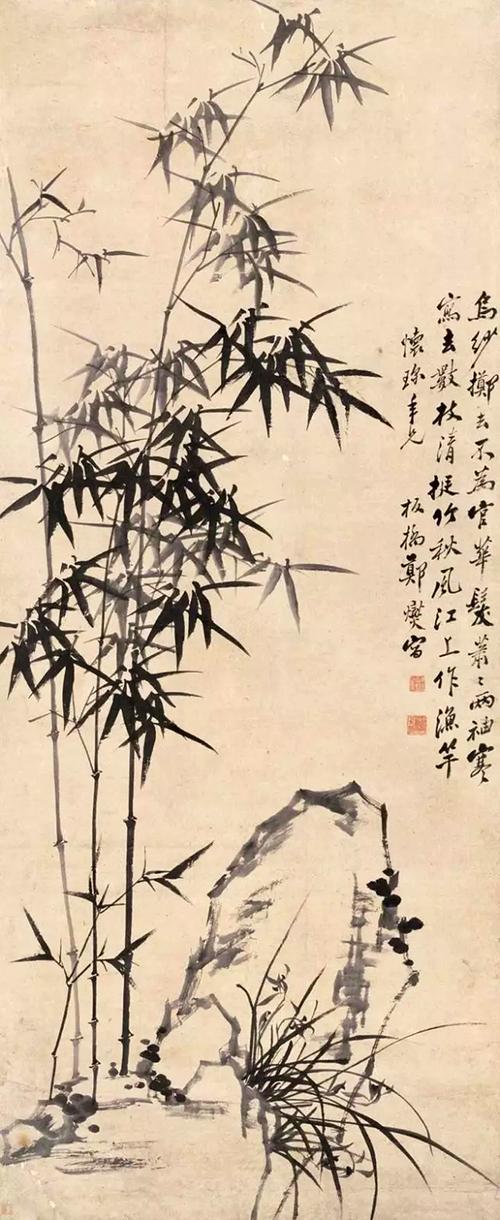 烏紗擲去不為官華髮蕭〻兩袖寒
寫去數枝清挺竹秋風江上作漁竿
懷珍年兄
板橋鄭燮寫